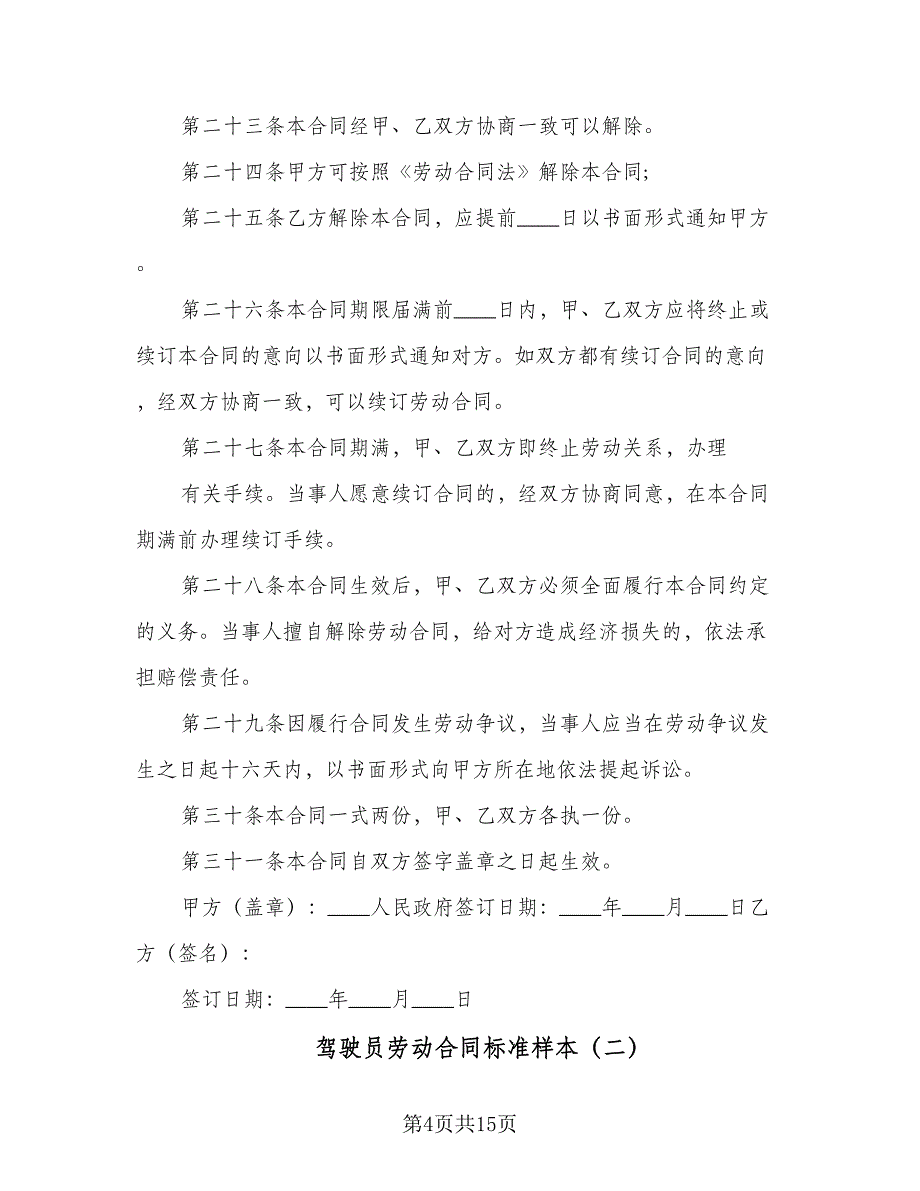 第二十三条本合同经甲、乙双方协商一致可以解除。
第二十四条甲方可按照《劳动合同法》解除本合同;
第二十五条乙方解除本合同，应提前____日以书面形式通知甲方
。
第二十六条本合同期限届满前____日内，甲、乙双方应将终止或
续订本合同的意向以书面形式通知对方。如双方都有续订合同的意向
，经双方协商一致，可以续订劳动合同。
第二十七条本合同期满，甲、乙双方即终止劳动关系，办理
有关手续。当事人愿意续订合同的，经双方协商同意，在本合同
期满前办理续订手续。
第二十八条本合同生效后，甲、乙双方必须全面履行本合同约定
的义务。当事人擅自解除劳动合同，给对方造成经济损失的，依法承
担赔偿责任。
第二十九条因履行合同发生劳动争议，当事人应当在劳动争议发
生之日起十六天内，以书面形式向甲方所在地依法提起诉讼。
第三十条本合同一式两份，甲、乙双方各执一份。
第三十一条本合同自双方签字盖章之日起生效。
甲方（盖章）：____人民政府签订日期：____年____月____日乙
方（签名）：
签订日期：____年____月____日
驾驶员劳动合同标准样本（二）
第4页共15页